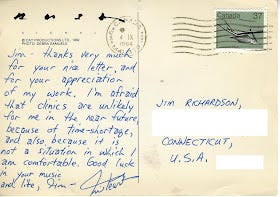 © CAT PRODUCTIONS LTD., 1982
PHOTO: DEBRA SAMUELS
Jim - thanks very much
for your nice letter, and
for your appreciation
of my work. I'm afraid
that clinics are unlikely
for me in the near future,
because of time-shortage,
and also because it is
not a situation in which I
am comfortable. Good luck
in your music
and life, Jim -
IX
1984
Canada
37
JIM RICHARDSON,
CONNECTICUT,
U.S.A.